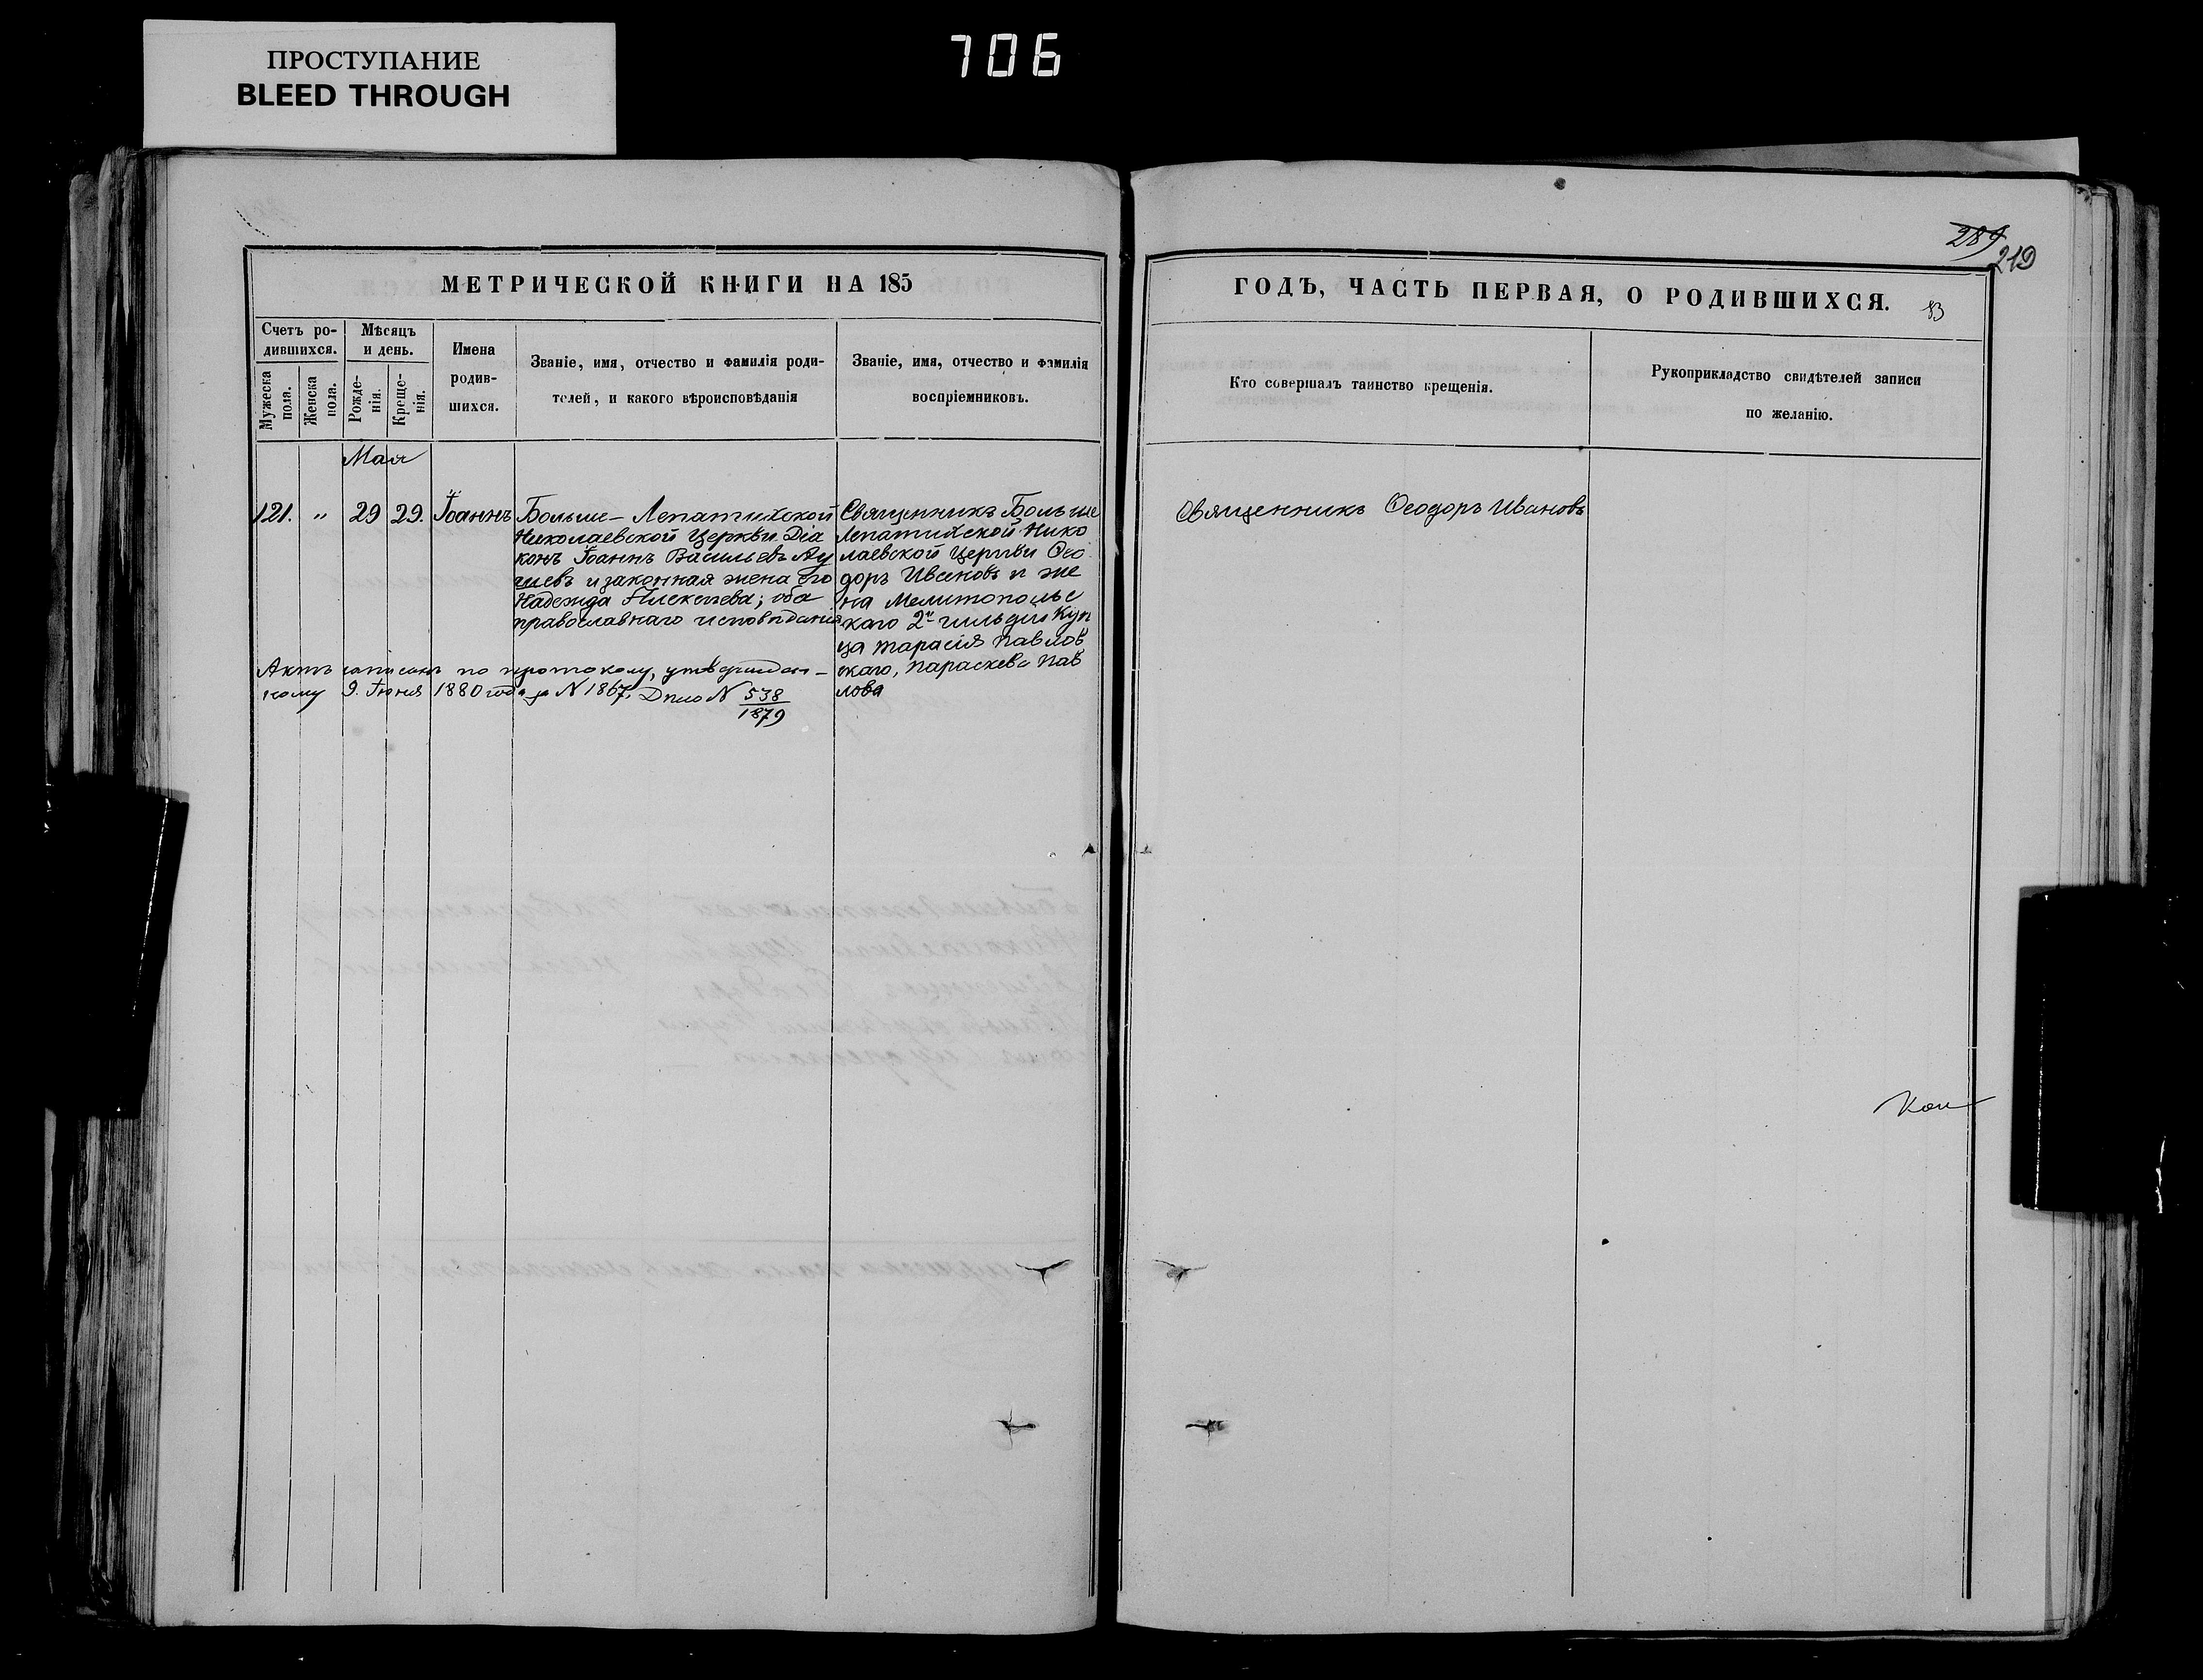 ПРОСТУПАНИЕ
BLEED THROUGH
706
289
219
МЕТРИЧЕСКОЙ КНИГИ НА 185
ГОДЪ, ЧАСТЬ ПЕРВАЯ, О РОДИВШИХСЯ.
Счетъ ро-
дившихся.
Мужеска
пола.
Женска
пола.
Мѣсяцъ
и день.
Рожде-
нія.
Креще-
нія.
Имена
родив-
шихся.
Званіе, имя, отчество и фамилія роди-
телей, и какого вѣроисповѣданія
Званіе, имя, отчество и фамилія
воспріемниковъ.
Кто совершалъ таинство крещенія.
Рукоприкладство свидѣтелей записи
по желанію.
Мая
121. " 29 29. Іоаннъ
Больше-Лепатихской
Николаевской Церкви Діа
конъ Іоаннъ Васильевъ
и законная жена его
Надежда Алексѣева; оба
православнаго исповѣданія
Священникъ Больше
Лепатихской Нико
лаевской Церкви Ѳео
доръ Ивановъ и же
на Мелитопольс
каго 2й гильдіи Куп
ца Тарасія Павлов
скаго, Параскева Пав
лова
Священникъ Ѳеодоръ Ивановъ
Актъ записанъ по протоколу, утвержден-
ному 9. Іюня 1880 года за N 1867. Дѣло N 538
1879